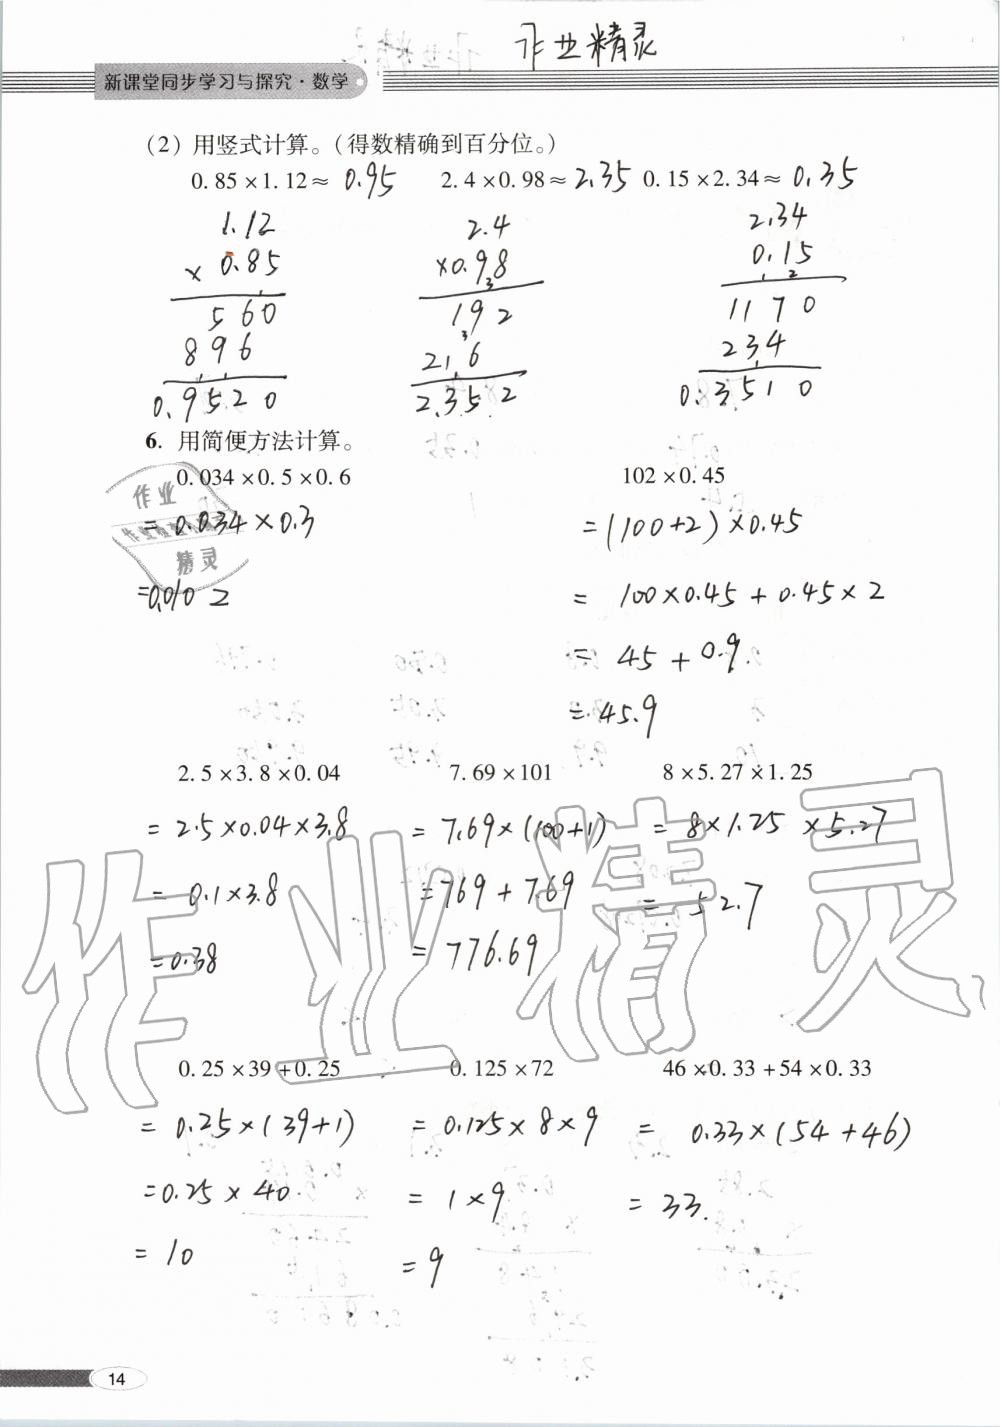 作业精灵
新课堂同步学习与探究·数学
(2) 用竖式计算。(得数精确到百分位。)
0.85×1.12≈ 0.95 2.4×0.98≈ 2.35 0.15×2.34≈ 0.35
1.12 2.4 2.34
×0.85 ×0.98 0.15
560 192 1170
896 216 234
0.9520 2.352 0.3510
6. 用简便方法计算。
0.034×0.5×0.6 102×0.45
=0.034×0.3 =(100+2)×0.45
=0.0102 = 100×0.45+0.45×2
= 45+0.9
=45.9
2.5×3.8×0.04 7.69×101 8×5.27×1.25
=2.5×0.04×3.8 =7.69×(100+1) =8×1.25×5.27
=0.1×3.8 =769+7.69 =52.7
=0.38 =776.69
0.25×39+0.25 0.125×72 46×0.33+54×0.33
=0.25×(39+1) =0.125×8×9 =0.33×(54+46)
=0.25×40 =1×9 =33
=10 =9
14
作业精灵
作业
精灵